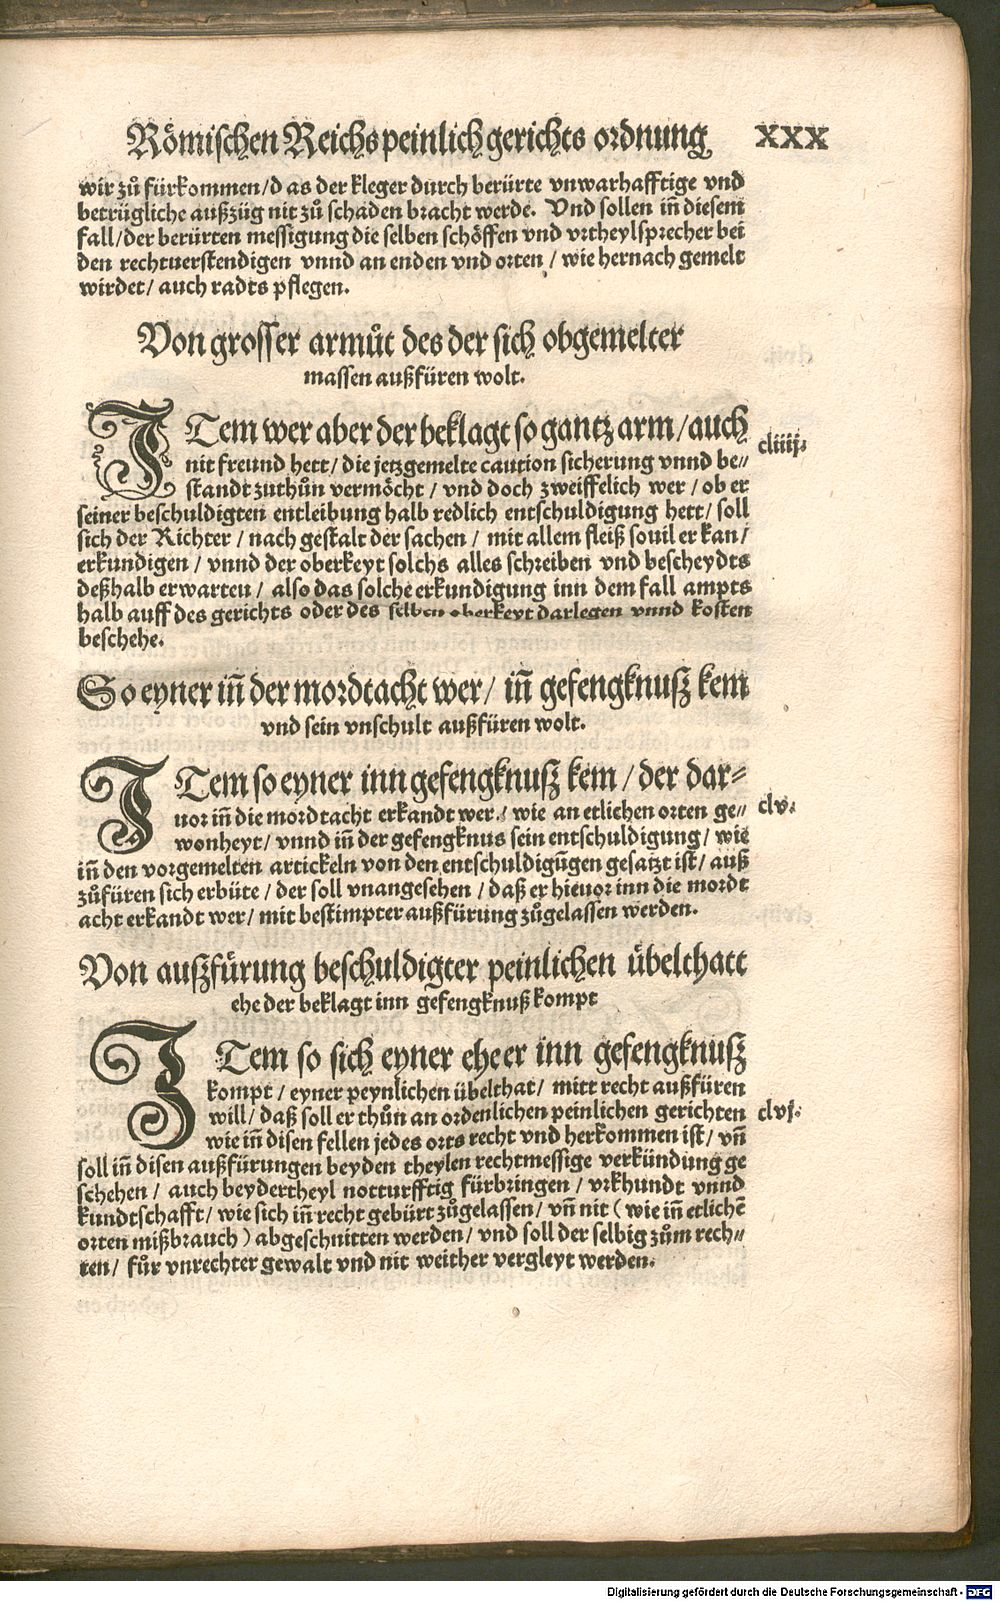 Roͤmischen Reichs peinlich gerichts ordnung XXX
wir zuͦ fürkommen / d as der kleger durch berürte vnwarhafftige vnd
betrügliche außzüg nit zuͦ schaden bracht werde. Vnd sollen in̄ diesem
fall / der berürten messigung die selben schoͤffen vnd vrtheylsprecher bei
den rechtuerstendigen vnnd an enden vnd orten / wie hernach gemelt
wirdet / auch radts pflegen.
Von grosser armuͦt des der sich obgemelter
massen außfüren wolt.
ITem wer aber der beklagt so gantz arm / auch
cliiij.
nit freund hett / die jetzgemelte caution sicherung vnnd be⸗
standt zuthuͦn vermoͤcht / vnd doch zweiffelich wer / ob er
seiner beschuldigten entleibung halb redlich entschuldigung hett / soll
sich der Richter / nach gestalt der sachen / mit allem fleiß souil er kan /
erkundigen / vnnd der oberkeyt solchs alles schreiben vnd bescheydts
deßhalb erwarten / also das solche erkundigung inn dem fall ampts
halb auff des gerichts oder des selben oberkeyt darlegen vnnd kosten
beschehe.
So eyner in̄ der mordtacht wer / in̄ gefengknusz kem
vnd sein vnschult außfüren wolt.
ITem so eyner inn gefengknusz kem / der dar⸗
clv.
uor in̄ die mordtacht erkandt wer / wie an etlichen orten ge⸗
wonheyt / vnnd in̄ der gefengknus sein entschuldigung / wie
in̄ den vorgemelten artickeln von den entschuldigūgen gesatzt ist / auß
zuͦfüren sich erbüte / der soll vnangesehen / daß er hieuor inn die mordt
acht erkandt wer / mit bestimpter außfürung zuͦgelassen werden.
Von auszfürung beschuldigter peinlichen übelthatt
ehe der beklagt inn gefengknuß kompt
ITem so sich eyner ehe er inn gefengknusz
kompt / eyner peynlichen übelthat / mitt recht außfüren
will / daß soll er thuͦn an ordenlichen peinlichen gerichten
clvj.
wie in̄ disen fellen jedes orts recht vnd herkommen ist / vn̄
soll in̄ disen außfürungen beyden theylen rechtmessige verkündung ge
schehen / auch beydertheyl notturfftig fürbringen / vrkhundt vnnd
kundtschafft / wie sich in̄ recht gebürt zuͦgelassen / vn̄ nit ( wie in̄ etlichē
orten mißbrauch ) abgeschnitten werden / vnd soll der selbig zuͦm rech⸗
ten / fuͤr vnrechter gewalt vnd nit weither vergleyt werden.
Digitalisierung gefördert durch die Deutsche Forschungsgemeinschaft - DFG